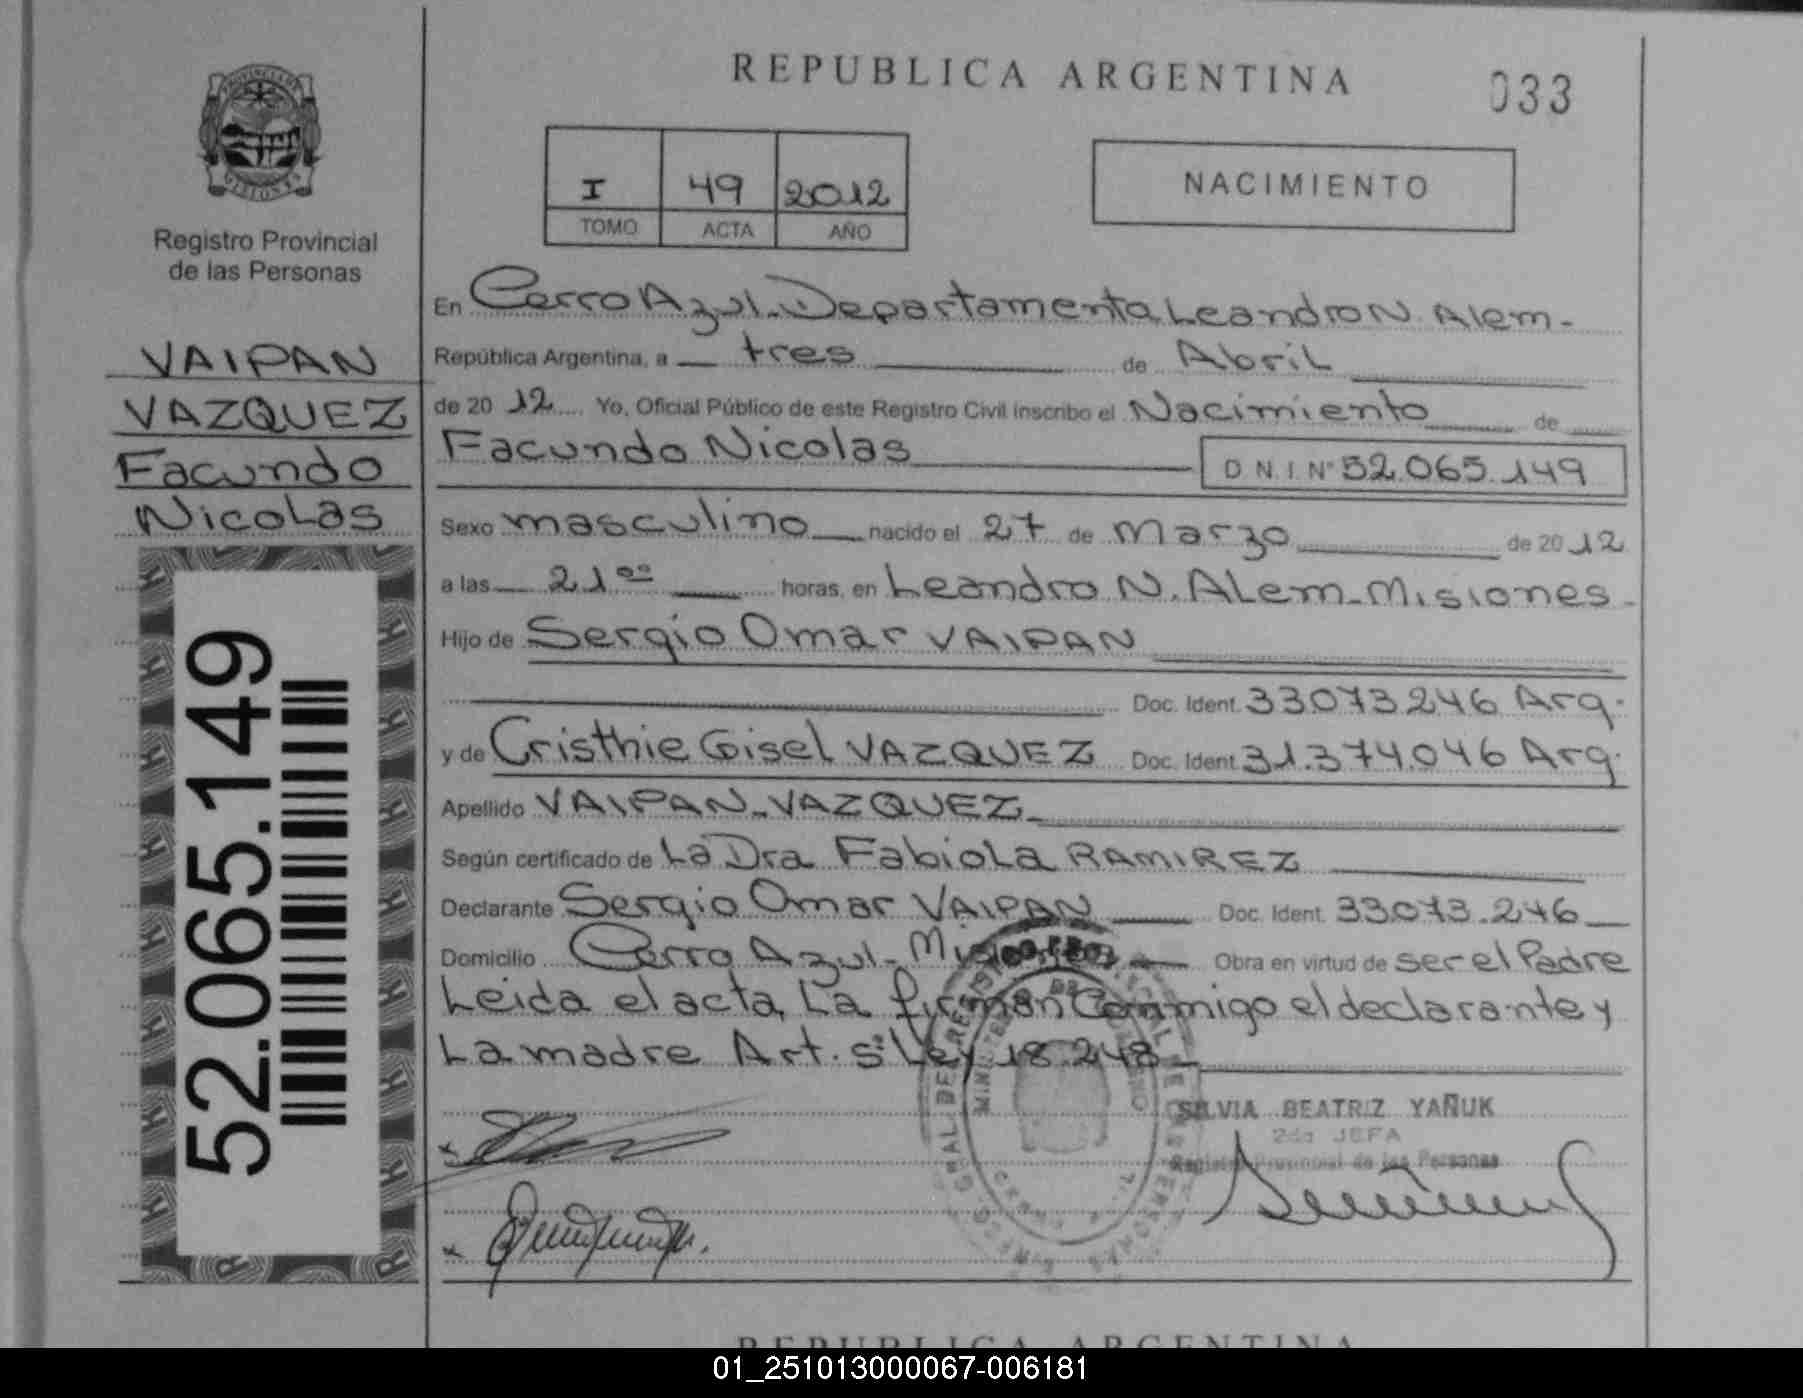 REPUBLICA ARGENTINA
033
PROVINCIA DE MISIONES
Registro Provincial
de las Personas
I 49 2012
TOMO ACTA AÑO
NACIMIENTO
VAIPAN
VAZQUEZ
Facundo
Nicolas
52.065.149
En Cerro Azul-Departamento Leandro N. Alem-
República Argentina, a tres de Abril
de 2012 Yo, Oficial Público de este Registro Civil inscribo el Nacimiento de
Facundo Nicolas D.N.I. Nº 52.065.149
Sexo masculino nacido el 27 de Marzo de 2012
a las 21⁰⁰ horas, en Leandro N. Alem-Misiones-
Hijo de Sergio Omar VAIPAN
Doc. Ident. 33073246 Arg.
y de Cristhie Gisel VAZQUEZ Doc. Ident. 31.374.046 Arg.
Apellido VAIPAN-VAZQUEZ-
Según certificado de La Dra Fabiola RAMIREZ
Declarante Sergio Omar VAIPAN Doc. Ident. 33073.246
Domicilio Cerro Azul-Misiones Obra en virtud de ser el Padre
Leida el acta, La firman Conmigo el declarante y
La madre Art. 5º Ley 18.248-
SILVIA BEATRIZ YAÑUK
2da JEFA
Registro Provincial de las Personas
REPUBLICA ARGENTINA
01_251013000067-006181